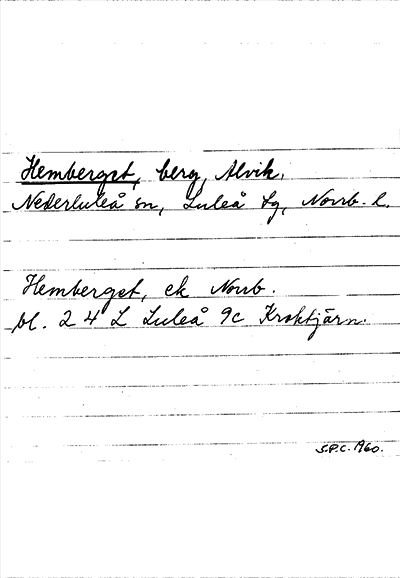 Hemberget, berg, Alvik,
Nederluleå sn, Luleå tg, Norrb. l.
Hemberget, ek Norrb.
bl. 24 L Luleå 9c Kroktjärn.
S.P.C. 1960.